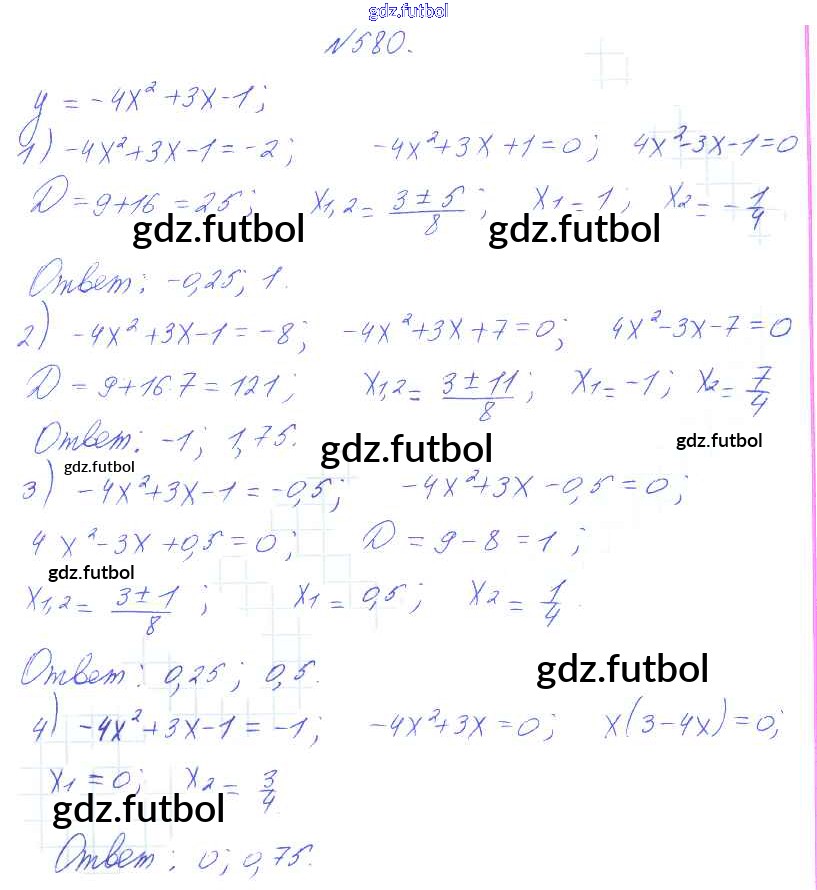 gdz.futbol
№580.
y = -4x² + 3x - 1;
1) -4x² + 3x - 1 = -2; -4x² + 3x + 1 = 0; 4x² - 3x - 1 = 0
D = 9 + 16 = 25; x₁,₂ = (3 ± 5)/8; x₁ = 1; x₂ = -1/4
gdz.futbol gdz.futbol
Ответ: -0,25; 1.
2) -4x² + 3x - 1 = -8; -4x² + 3x + 7 = 0; 4x² - 3x - 7 = 0
D = 9 + 16·7 = 121; x₁,₂ = (3 ± 11)/8; x₁ = -1; x₂ = 7/4
Ответ: -1; 1,75.
gdz.futbol gdz.futbol
gdz.futbol
3) -4x² + 3x - 1 = -0,5; -4x² + 3x - 0,5 = 0;
4x² - 3x + 0,5 = 0; D = 9 - 8 = 1;
gdz.futbol
x₁,₂ = (3 ± 1)/8; x₁ = 0,5; x₂ = 1/4.
Ответ: 0,25; 0,5.
gdz.futbol
4) -4x² + 3x - 1 = -1; -4x² + 3x = 0; x(3 - 4x) = 0;
x₁ = 0; x₂ = 3/4.
gdz.futbol
Ответ: 0; 0,75.